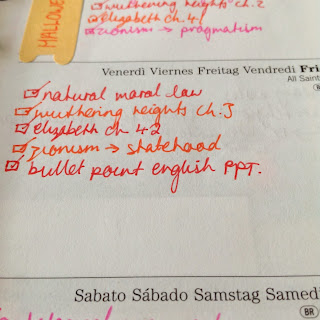 HALLOWE
wuthering heights ch. 2
elizabeth ch. 41
zionism → pragmatism
Venerdì Viernes Freitag Vendredi Fri
All Saint
natural moral law
wuthering heights ch. 3
elizabeth ch 42
zionism → statehood
bullet point english PPT.
Sabato Sábado Samstag Samedi
BR